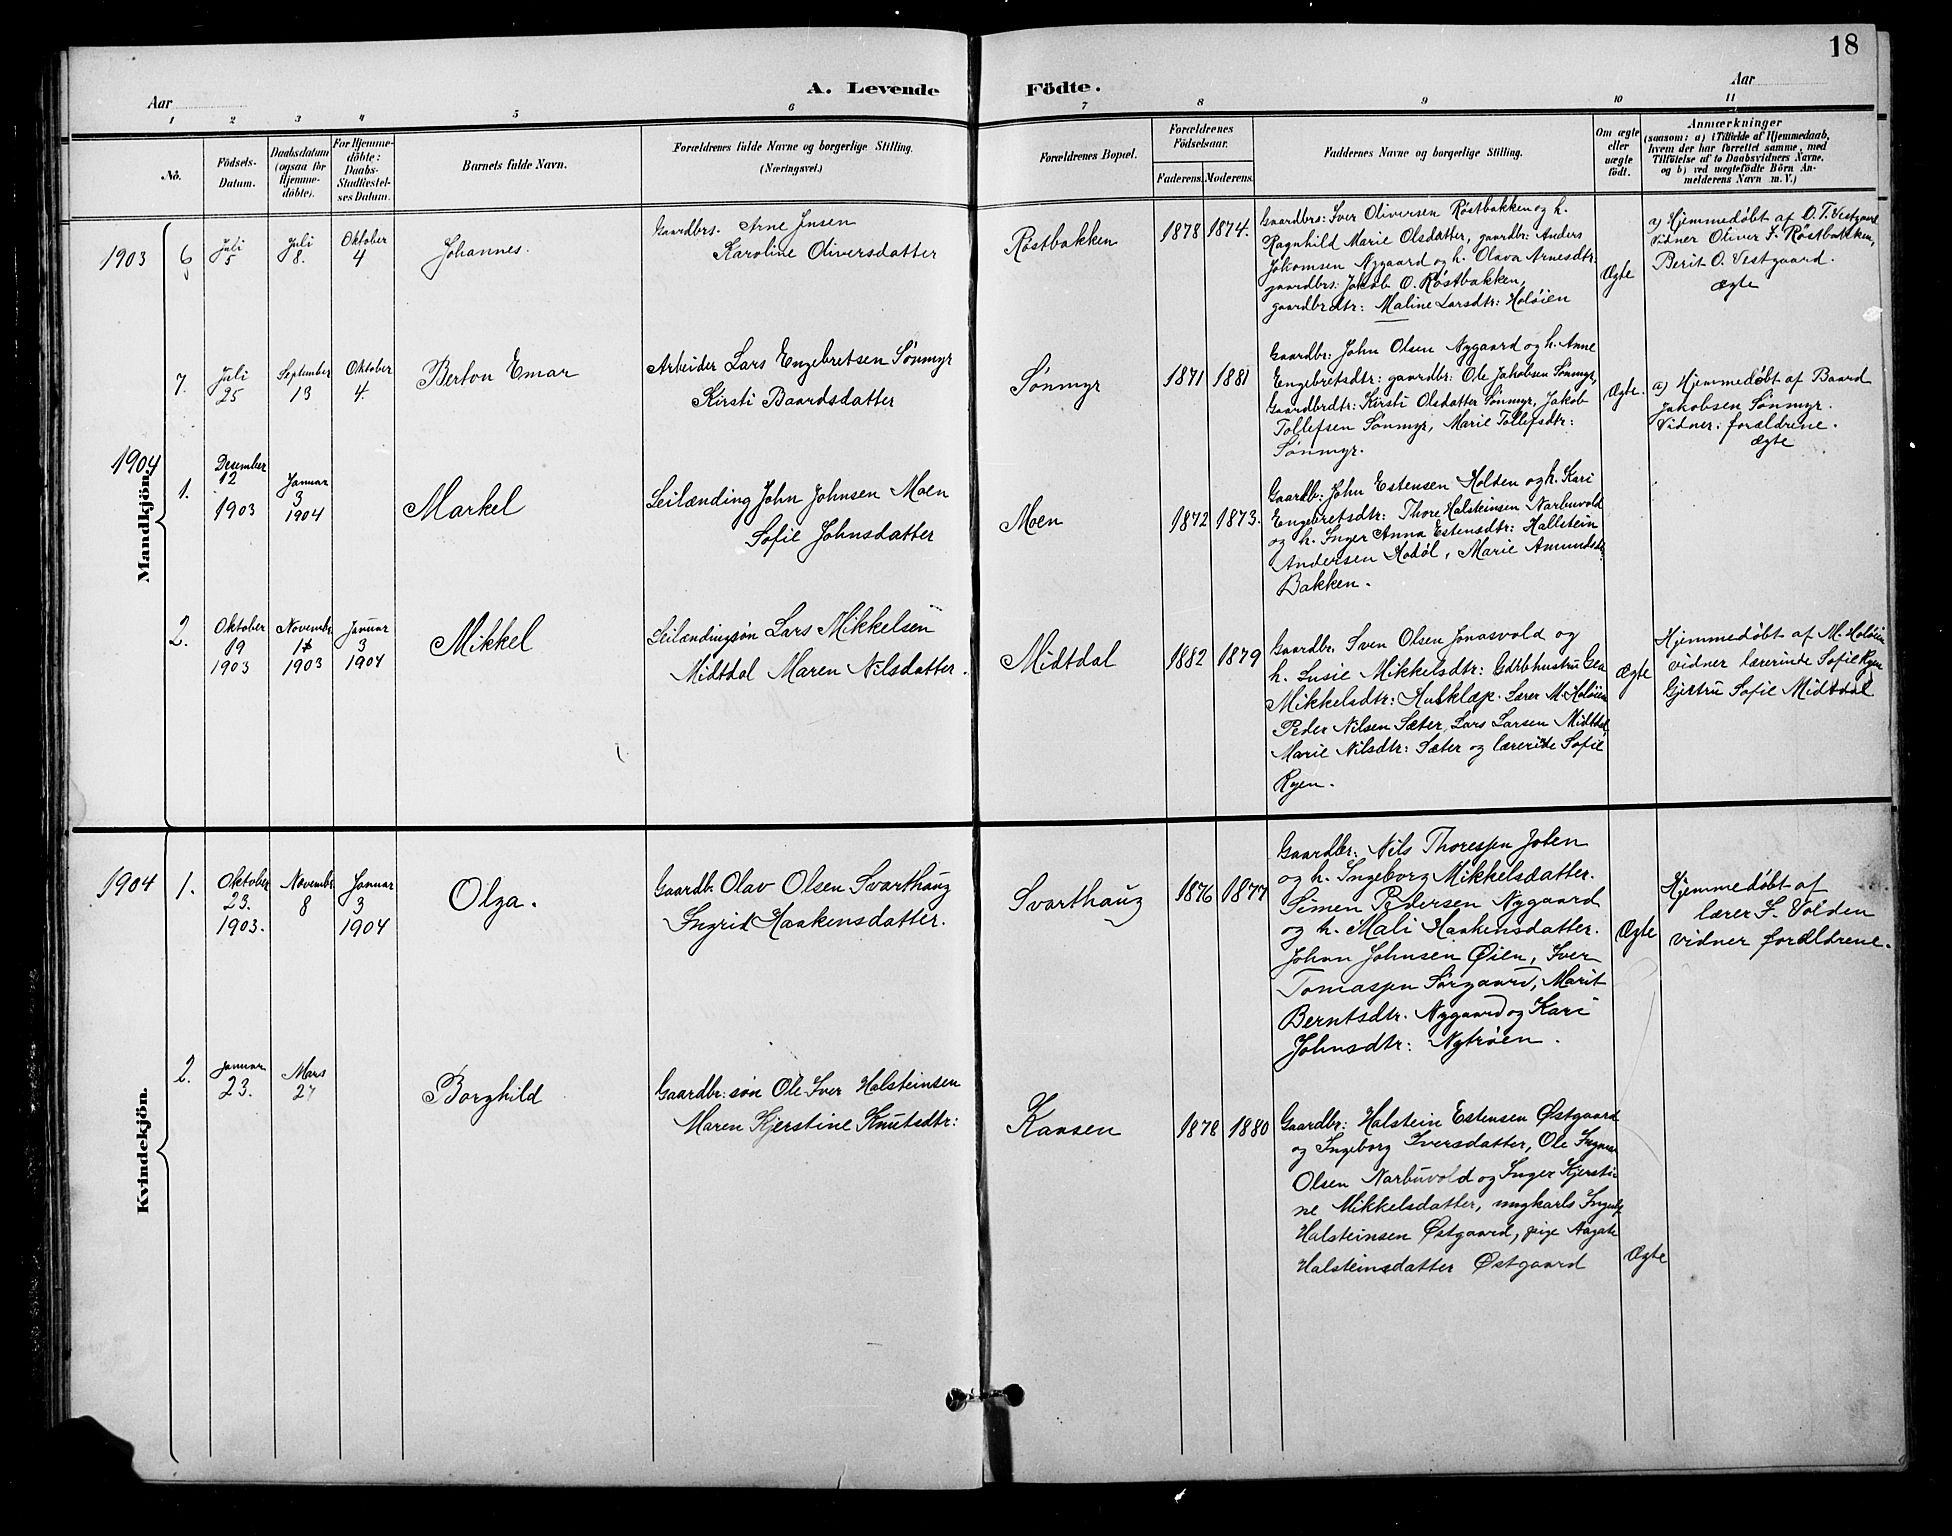 18
A. Levende Födte.
Aar
Aar
1 2 3 4 5 6 7 8 9 10 11
No.
Födsels-
Datum.
Daabsdatum
(ogsaa for
Hjemme-
döbte).
For Hjemme-
döbte:
Daabs-
Stadfæstel-
ses Datum.
Barnets fulde Navn.
Forældrenes fulde Navne og borgerlige Stilling.
(Næringsvei.)
Forældrenes Bopæl.
Forældrenes
Födselsaar.
Faderens. Moderens.
Faddernes Navne og borgerlige Stilling.
Om ægte
eller
uægte
födt.
Anmærkninger
(saasom: a) i Tilfælde af Hjemmedaab,
hvem der har forrettet samme, med
Tilföielse af to Daabsvidners Navne,
og b) ved uægtefödte Börn An-
melderens Navn m. V.)
Mandkjön.
1903
6
Juli
5
Juli
8.
Oktober
4
Johannes.
Gaardbrs. Arne Jnsen
Karoline Oliversdatter
Röstbakken
1878 1874.
Gaardbrs: Iver Oliversen Røstbakken og h.
Ragnhild Marie Olsdatter, gaardbr: Anders
Jokomsen Nygaard og h. Olava Arnesdtr
gaardbrs: Jakob O. Røstbakken,
gaardbrdtr: Maline Larsdtr: Holøien
Ægte
a) Hjemmedøbt af O. T. Vestgaard
Vidner Oliver I. Røstbakken,
Berit O. Vestgaard.
ægte
7.
Juli
25
September
13
Oktober
4.
Berton Emar
Arbeider Lars Engebretsen Sönmyr
Kirsti Baardsdatter
Sönmyr
1871 1881
Gaardbr: John Olsen Nygaard og h. Anne
Engebretsdtr: gaardbr: Ole Jakobsen Sönmyr,
Gaardbrdtr: Kirsti Olsdatter Sönmyr, Jakob
Tollefsen Sönmyr, Marie Tollefsdtr:
Sönmyr.
Ægte.
a) Hjemmedøbt af Baard
Jakobsen Sönmyr.
Vidner: forældrene.
ægte
1904
1.
Desember
12
1903
Januar
3
1904
Markel
Leilænding John Johnsen Moen
Sofie Johnsdatter
Moen
1872 1873.
Gaardb: John Estensen Holden og h. Kari
Engebretsdtr: Thore Halsteinsen Narbuvold
og h. Inger Anna Estensdtr: Hallstein
Andersen Hodøl, Marie Amundsdtr
Bakken.
2.
Oktober
19
1903
Novembr
1903
Januar
3
1904
Mikkel
Leilændingsøn Lars Mikkelsen
Midtdal Maren Nilsdatter.
Midtdal
1882 1879
Gaardbr: Sven Olsen Jonasvold og
h. Lusie Mikkelsdtr: Gdrbhustru Gea
Mikkelsdtr: Huskleap. Lærer M. Holøien
Peder Nilsen Sæter, Lars Larsen Midtdal,
Marie Nilsdtr: Sæter og lærerinde Sofie
Ryen.
Ægte
Hjemmedøbt af M. Holøien
vidner lærerinde Sofie Ryen
Gjertru Sofie Midtdal
Kvindekjön.
1904
1.
Oktober
23.
1903.
Novembr
8
Januar
3
1904
Olga.
Gaardb. Olav Olsen Svarthaug
Ingrid Haakensdatter.
Svarthaug
1876 1877
Gaardbr: Nils Thoresen Joten
og h. Ingeborg Mikkelsdatter.
Simen Pedersen Nygaard
og h. Mali Haakensdatter.
Johan Johnsen Øien, Iver
Tomassen Sørgaard, Marit
Berntsdtr. Nygaard og Kari
Johnsdtr: Nytröen.
Ægte
Hjemmedøbt af
lærer S. Volden
vidner forældrene.
2.
Januar
23.
Mars
27
Borghild
Gaardbr: søn Ole Iver Halsteinsen
Maren Kjerstine Knutsdtr:
Kaasen
1878 1880
Gaardbr: Halstein Estensen Østgaard
og Ingeborg Iversdatter, Ole
Olsen Narbuvold og Inger Kjersti-
ne Mikkelsdatter, ungkarls
Halsteinsen Østgaard, pige Aagate
Halsteinsdatter Østgaard
Ægte